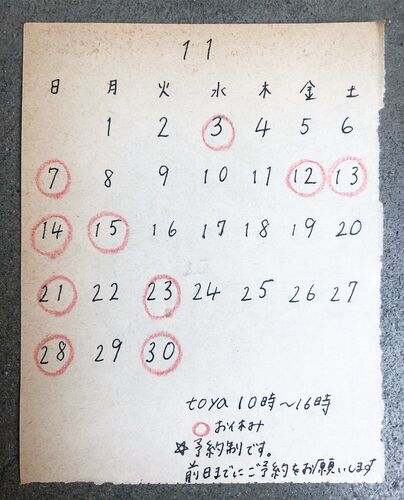 11
日 月 火 水 木 金 土
1 2 3 4 5 6
7 8 9 10 11 12 13
14 15 16 17 18 19 20
21 22 23 24 25 26 27
28 29 30
toya 10時〜16時
○お休み
☆予約制です。
前日までにご予約をお願いします